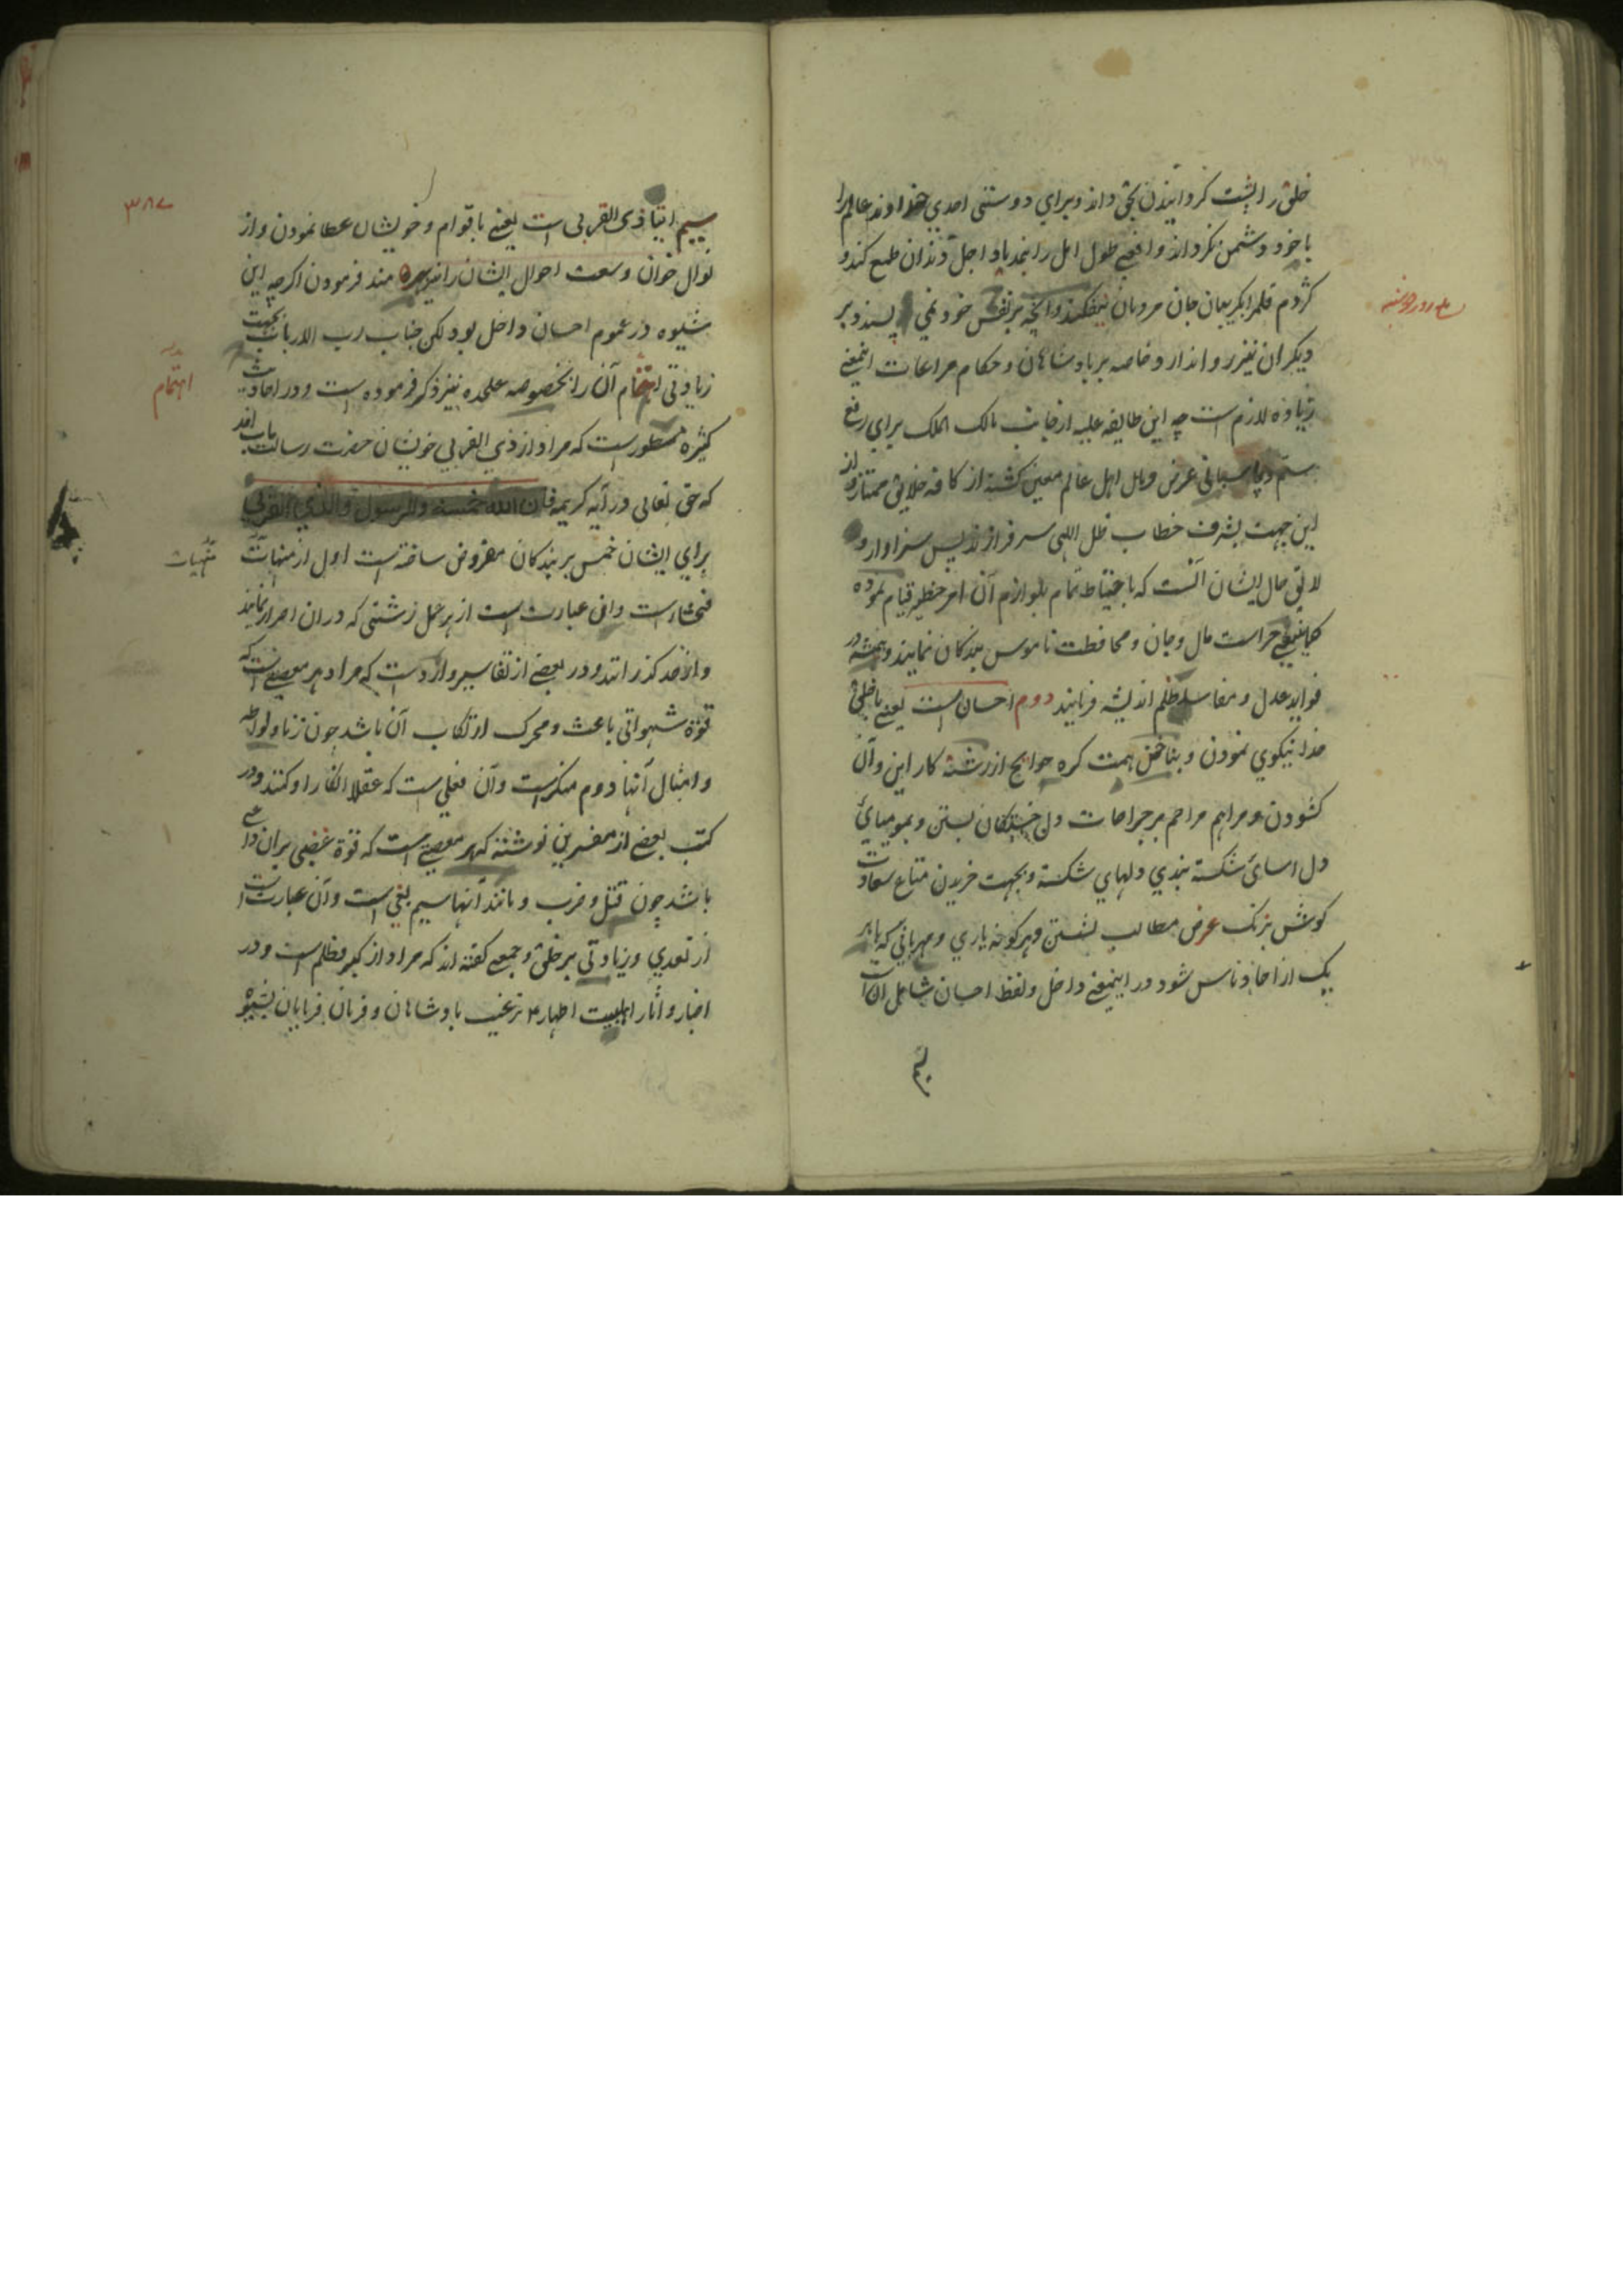 خلق را پشت کردانیدن بحق داند و برای دوستی احدی خداوند عالم را
با خود دشمن نکرداند و افعی طول امل را بخدماد اجل دندان طمع کند و
کژدم قلم را بکریبان جان مردمان نیفکند و انچه بر نفس خود نمی پسندد بر
دیکران نیز روا ندارد و خاصه بر پادشاهان و حکام مراعات اینمعنی
زیاده لازم است چه این طایفه علیه از جانب مالک الملک برای رفع
ستم و پاسبانی عرض و مال اهل عالم معین کشته از کافه خلایق ممتاز و از
این جهت بشرف خطاب ظل اللهی سرفرازند پس سزاوار و
لایق حال ایشان آنست که باحتیاط تمام بلوازم آن امر خطیر قیام نموده
کماینبغی حراست مال و جان و محافظت ناموس بندکان نمایند و همیشه در
فواید عدل و مفاسد ظلم اندیشه فرمایند دوم احسان است یعنی با خلق
خدا نیکوی نمودن و بناخن همت کره حوایج از رشته کار این و آن
کشودن و مراهم مراحم بر جراحات دل خستکان بستن و بمومیائی
دل اسائی شکسته بندی دلهای شکسته و بجهت خریدن متاع سعادت
کوش بزنک عرض مطالب نشستن و هر کونه یاری و مهربانی که با هر
یک از احاد ناس شود در اینمعنی داخل و لفظ احسان شامل آن است
سیم
۳۸۷
سیم ایتاء ذی القربی است یعنی باقوام و خویشان عطا نمودن و از
نوال خوان وسعت احوال ایشان را نیز بهره مند فرمودن اکرچه این
شیوه در عموم احسان داخل بود لکن جناب رب الارباب بجهت
زیادتی اهتمام آن را بخصوصه علیحده نیز ذکر فرموده است و در احادیث
اهتمام
کثیره مسطور است که مراد از ذی القربی خویشان حضرت رسالت
که حق تعالی در آیه کریمه فان الله خمسه وللرسول ولذی القربی
برای ایشان خمس بر بندکان مفروض ساخته است اول از منهیات
منهیات
فحشاء است وان عبارت است از هر عمل زشتی که دران اصرار نمایند
و از حد کذرانند و در بعضی از تفاسیر وارد است که مراد هر معصیتی است که
قوة شهوانی باعث و محرک ارتکاب آن باشد چون زنا و لواطه
و امثال آنها دوم منکر است وآن فعلی است که عقلا انکار او کنند و در
کتب بعضی از مفسرین نوشته که هر معصیتی است که قوة غضبی بران داعی
باشد چون قتل و ضرب و مانند آنها سیم بغی است وآن عبارت است
از تعدی و زیادتی بر خلق و جمعی کفته اند که مراد از کبر و ظلم است و در
اخبار و اثار اهلبیت اطهار ترغیب پادشاهان و فرمان فرمایان بشیوه